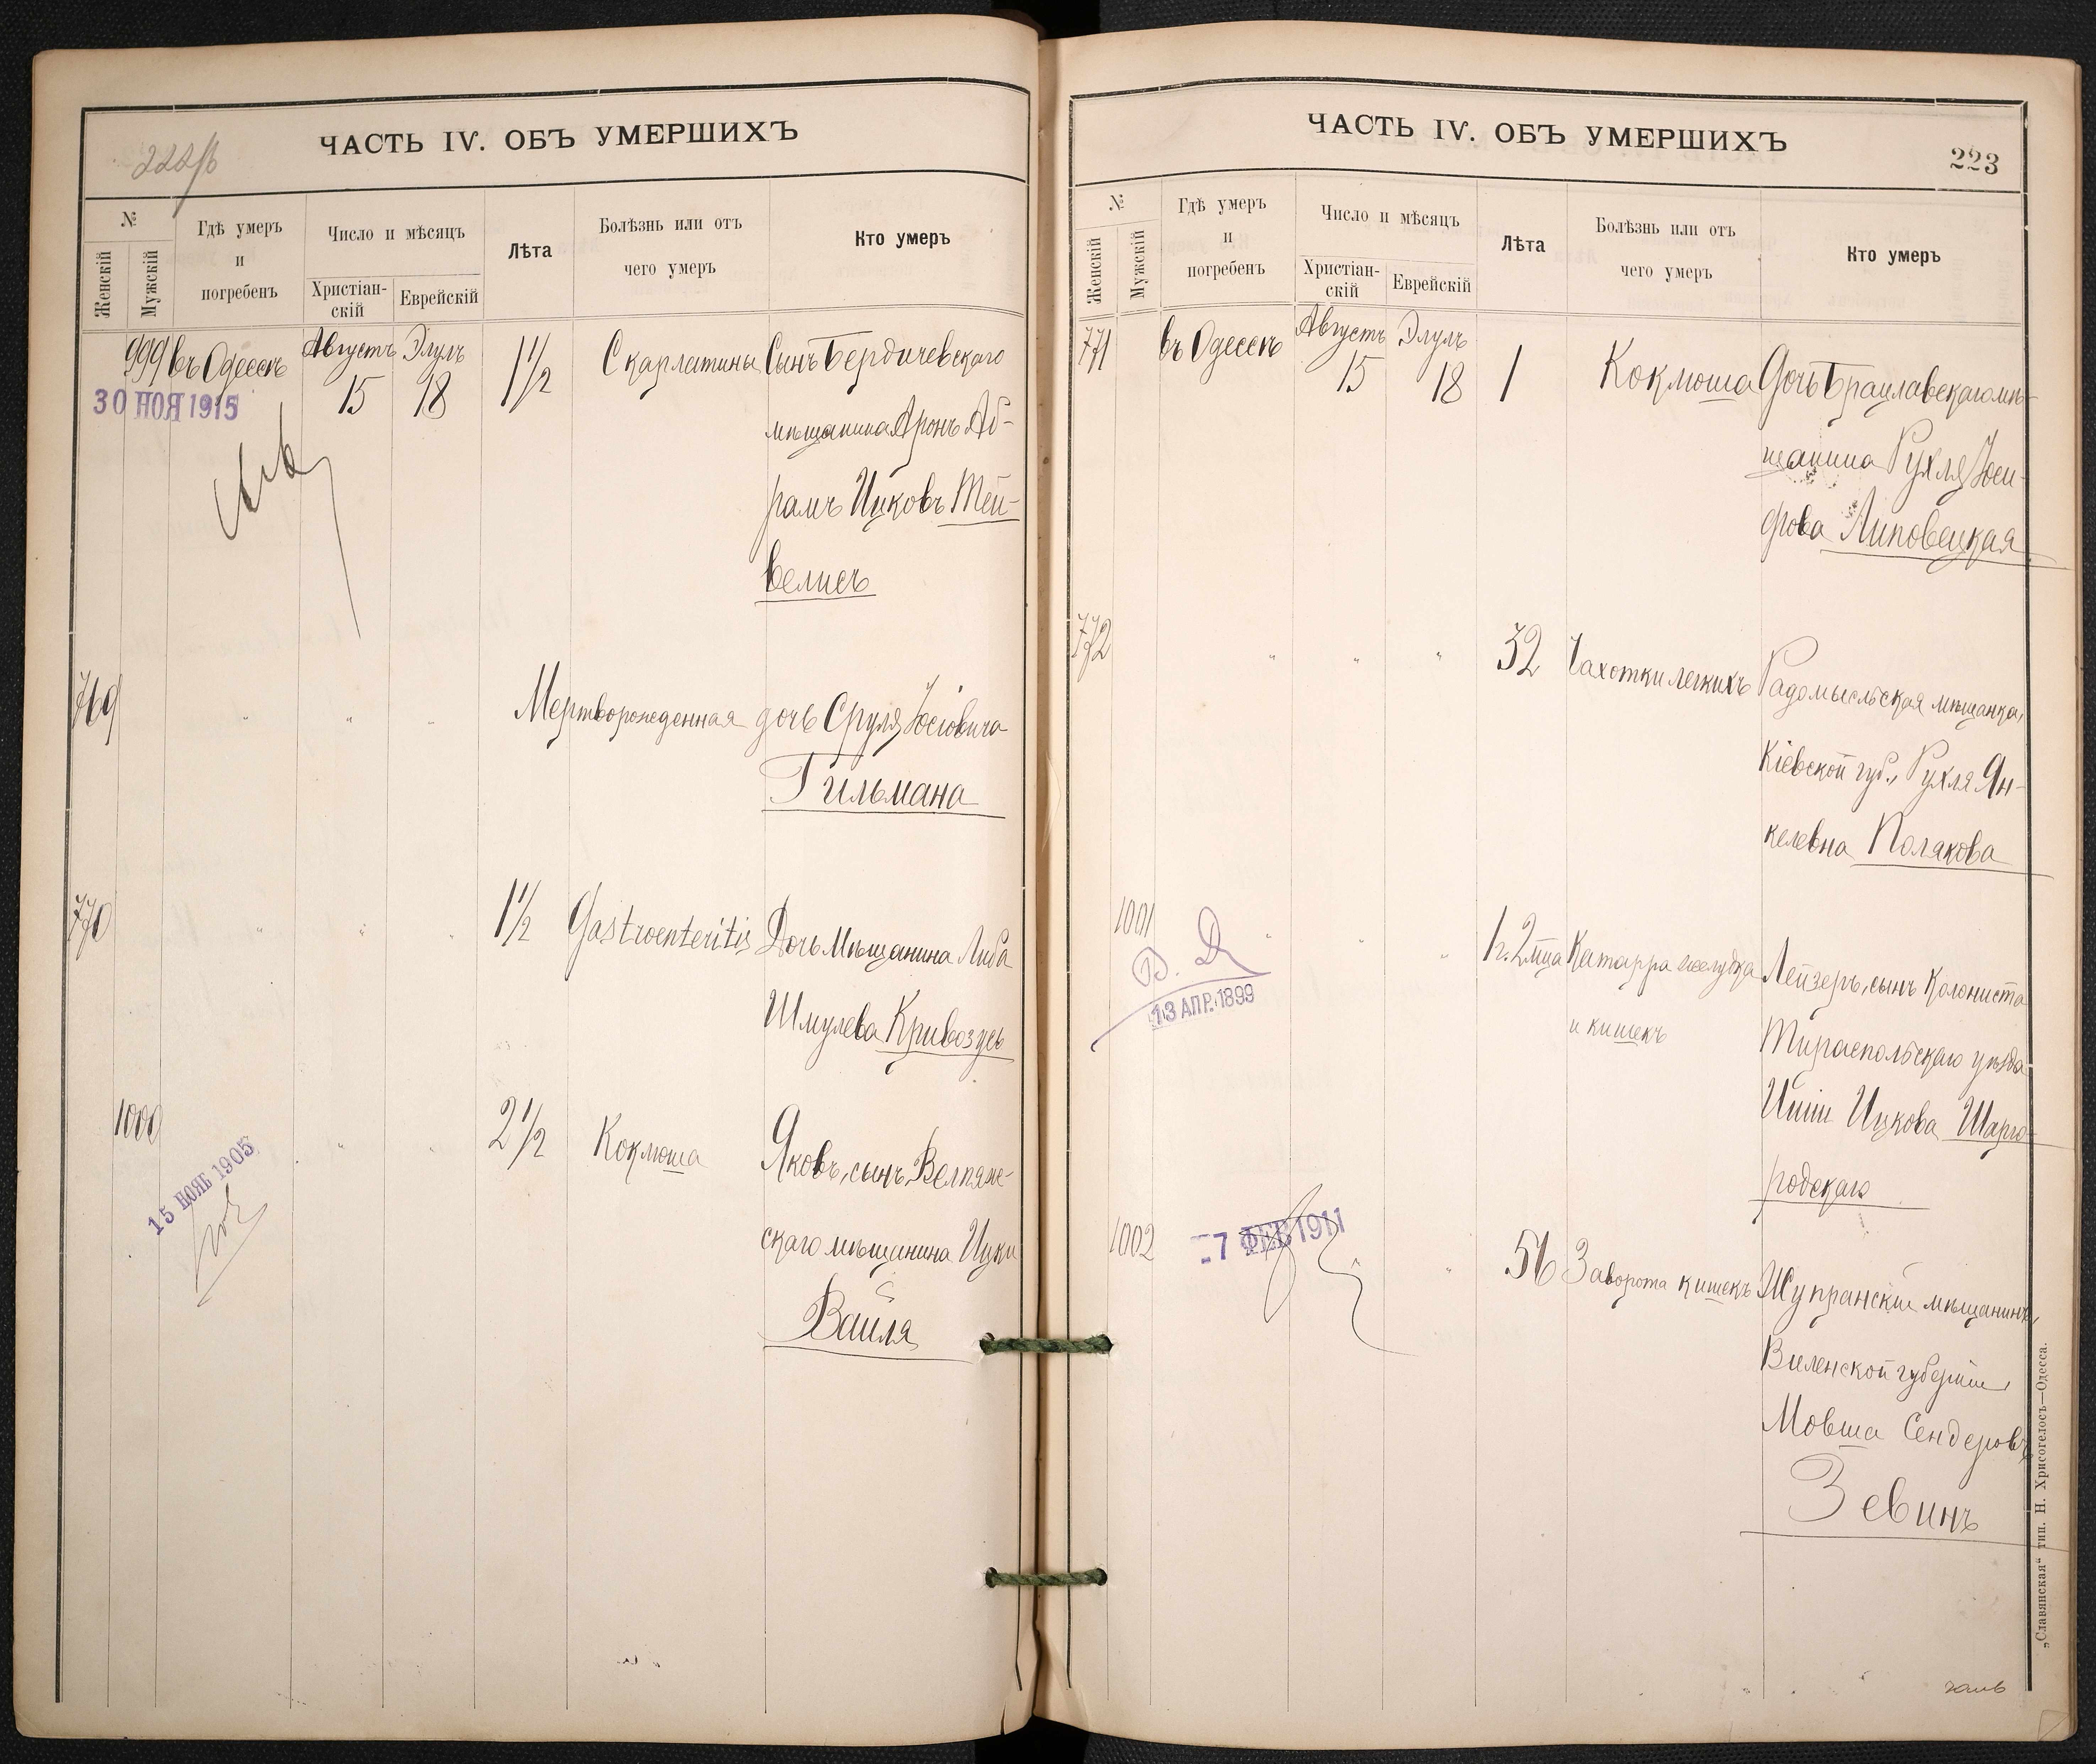 222/б
ЧАСТЬ IV. ОБЪ УМЕРШИХЪ
№
Женскій
Мужскій
Гдѣ умеръ
и
погребенъ
Число и мѣсяцъ
Христіан-
скій
Еврейскій
Лѣта
Болѣзнь или отъ
чего умеръ
Кто умеръ
999 въ Одессѣ Августъ 15 Элулъ 18 1 1/2 Скарлатины Сынъ Бердичевскаго
30 НОЯ 1915
мѣщанина Аронъ Аб-
рамъ Ицковъ Тей-
велисъ
769 " " " Мертворожденная дочь Сруля Іосіовича
Гильмана
770 " " " 1 1/2 Gastroenteritis Дочь Мѣщанина Либа
Шмулева Кривозусъ
1000 " " 2 1/2 Коклюша Яковъ, сынъ
15 НОЯБ 1905
скаго мѣщанина Ицки
Вайля
ЧАСТЬ IV. ОБЪ УМЕРШИХЪ
223
№
Женскій
Мужскій
Гдѣ умеръ
и
погребенъ
Число и мѣсяцъ
Христіан-
скій
Еврейскій
Лѣта
Болѣзнь или отъ
чего умеръ
Кто умеръ
771 въ Одессѣ Августъ 15 Элулъ 18 1 Коклюша Дочь Брацлавскаго мѣ-
щанина Рухля Іоси-
фова Липовецкая
772 " " " 32 Чахотки легкихъ Радомысльская мѣщанка,
Кіевской губ., Рухля Ян-
келевна Полякова
1001 " " " 1 г. 2 м-ца Катарра желудка Лейзеръ, сынъ Колониста
13 АПР. 1899
и кишекъ Тираспольскаго уѣзда
Ицкова Шарго-
родскаго
1002 " " 56 Заворота кишекъ Жупранскій мѣщанинъ,
-7 ФЕВ 1911
Виленской губерніи,
Мовша Сендеровъ
Зевинъ
„Славянская“ тип. Н. Хрисогелосъ—Одесса.